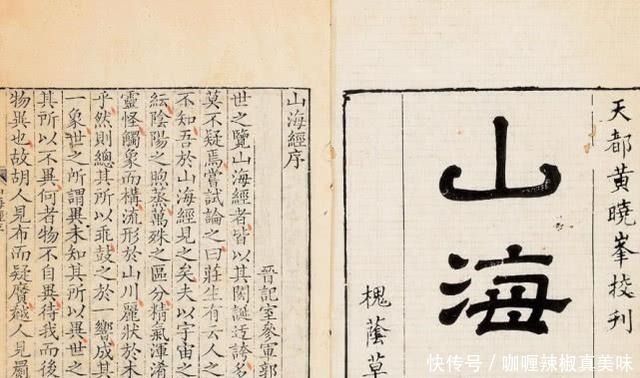 天都黄曉峯挍刊
山海
槐蔭草
山海經序
晉記室參軍郭
世之覽山海經者皆以其閎誕迂誇多
莫不疑焉嘗試論之曰莊生有云人之
不知吾於山海經見之矣夫以宇宙之
紜陰陽之煦蒸萬殊之區分精氣渾淆
靈怪觸象而構流形於山川麗狀於木
乎然則總其所以乖鼓之於一響成其
一象世之所謂異未知其所以異世之
其所以不異何者物不自異待我而後
物異也故胡人見布而疑黂越人見罽
快传号／咖喱辣椒真美味